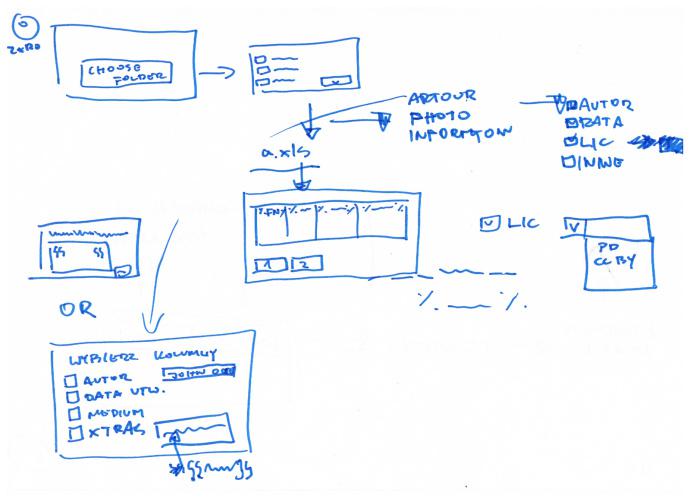 ZERO
CHOOSE
FOLDER
ARTOUR
PHOTO
INFORMTION
AUTOR
DATA
LIC
INNE
a.xls
1 2
LIC
V
PD
CC BY
OR
WYBIERZ KOLUMNY
AUTOR
JOHN DOE
DATA UTW.
MEDIUM
XTRAS